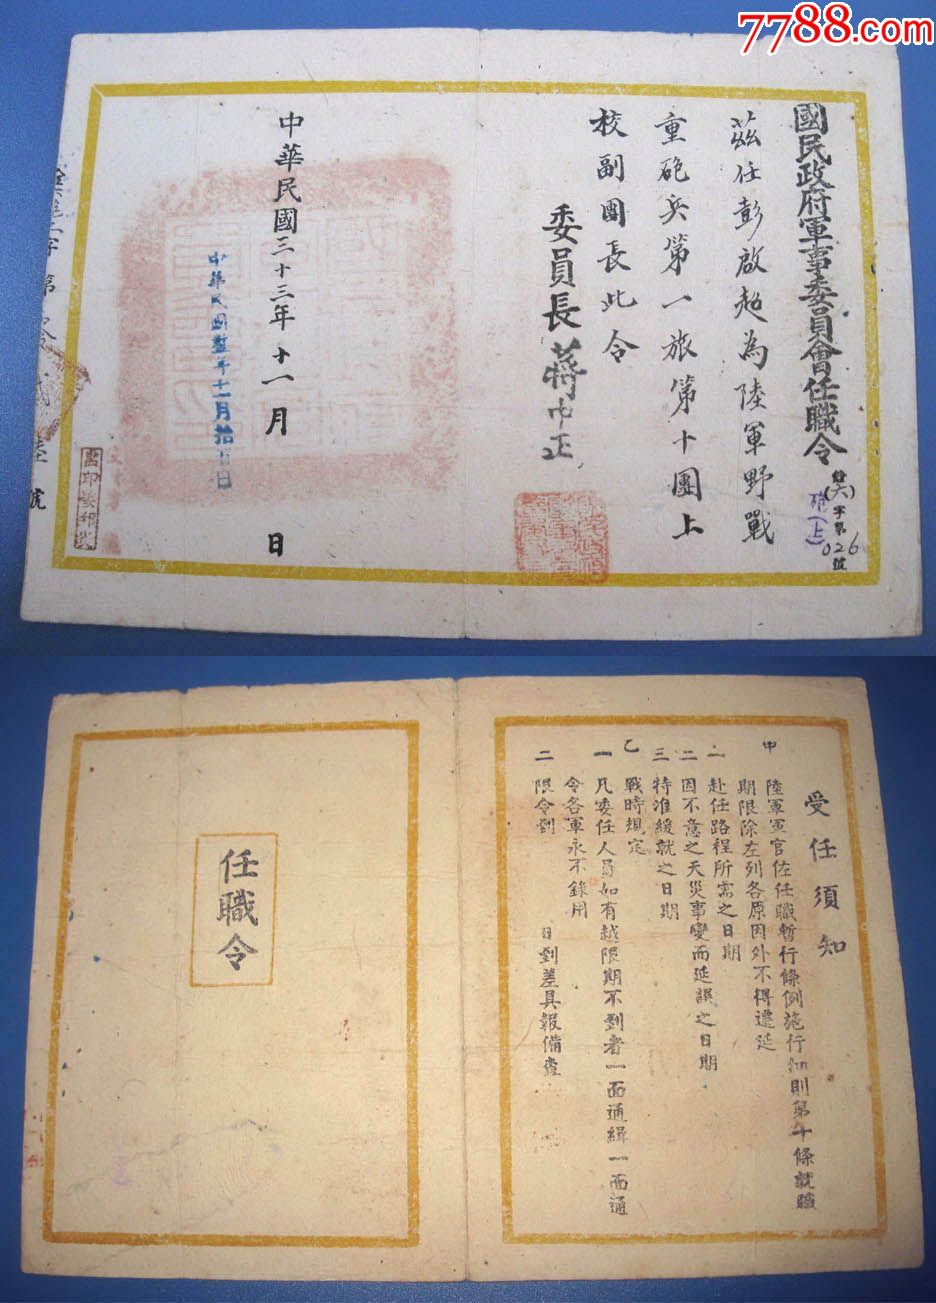 7788.com
國民政府軍事委員會任職令
字第026號
砲(上)
茲任彭啟超為陸軍野戰
重砲兵第一旅第十團上
校副團長此令
委員長蔣中正
中華民國三十三年十一月 日
第
號
受任須知
甲 陸軍軍官佐任職暫行條例施行細則第十條就職
期限除左列各原因外不得遷延
一 赴任路程所需之日期
二 因不意之天災事變而延誤之日期
三 特准緩就之日期
乙 戰時規定
一 凡委任人員如有越限期不到者一面通緝一面通
令各軍永不錄用
二 限令到 日到差具報備查
任職令